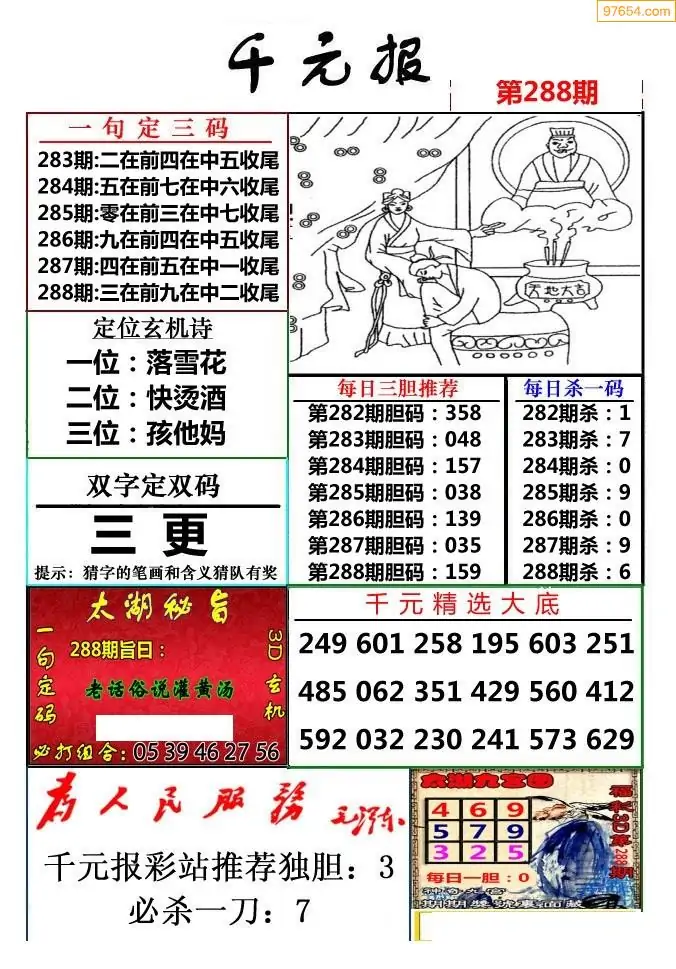 97654.com
千元报
第288期
一句定三码
283期:二在前四在中五收尾
284期:五在前七在中六收尾
285期:零在前三在中七收尾
286期:九在前四在中五收尾
287期:四在前五在中一收尾
288期:三在前九在中二收尾
天地大吉
定位玄机诗
一位：落雪花
二位：快烫酒
三位：孩他妈
每日三胆推荐
第282期胆码：358
第283期胆码：048
第284期胆码：157
第285期胆码：038
第286期胆码：139
第287期胆码：035
第288期胆码：159
每日杀一码
282期杀：1
283期杀：7
284期杀：0
285期杀：9
286期杀：0
287期杀：9
288期杀：6
双字定双码
三更
提示：猜字的笔画和含义猜队有奖
太湖秘旨
一句定码
3D玄机
288期旨曰：
老话俗说灌黄汤
必打组合：05 39 46 27 56
千元精选大底
249 601 258 195 603 251
485 062 351 429 560 412
592 032 230 241 573 629
为人民服務
毛泽东
千元报彩站推荐独胆：3
必杀一刀：7
太湖九宫图
4 6 9
5 7 9
3 2 5
每日一胆：0
福彩3D第288期
期期獎號裏面藏